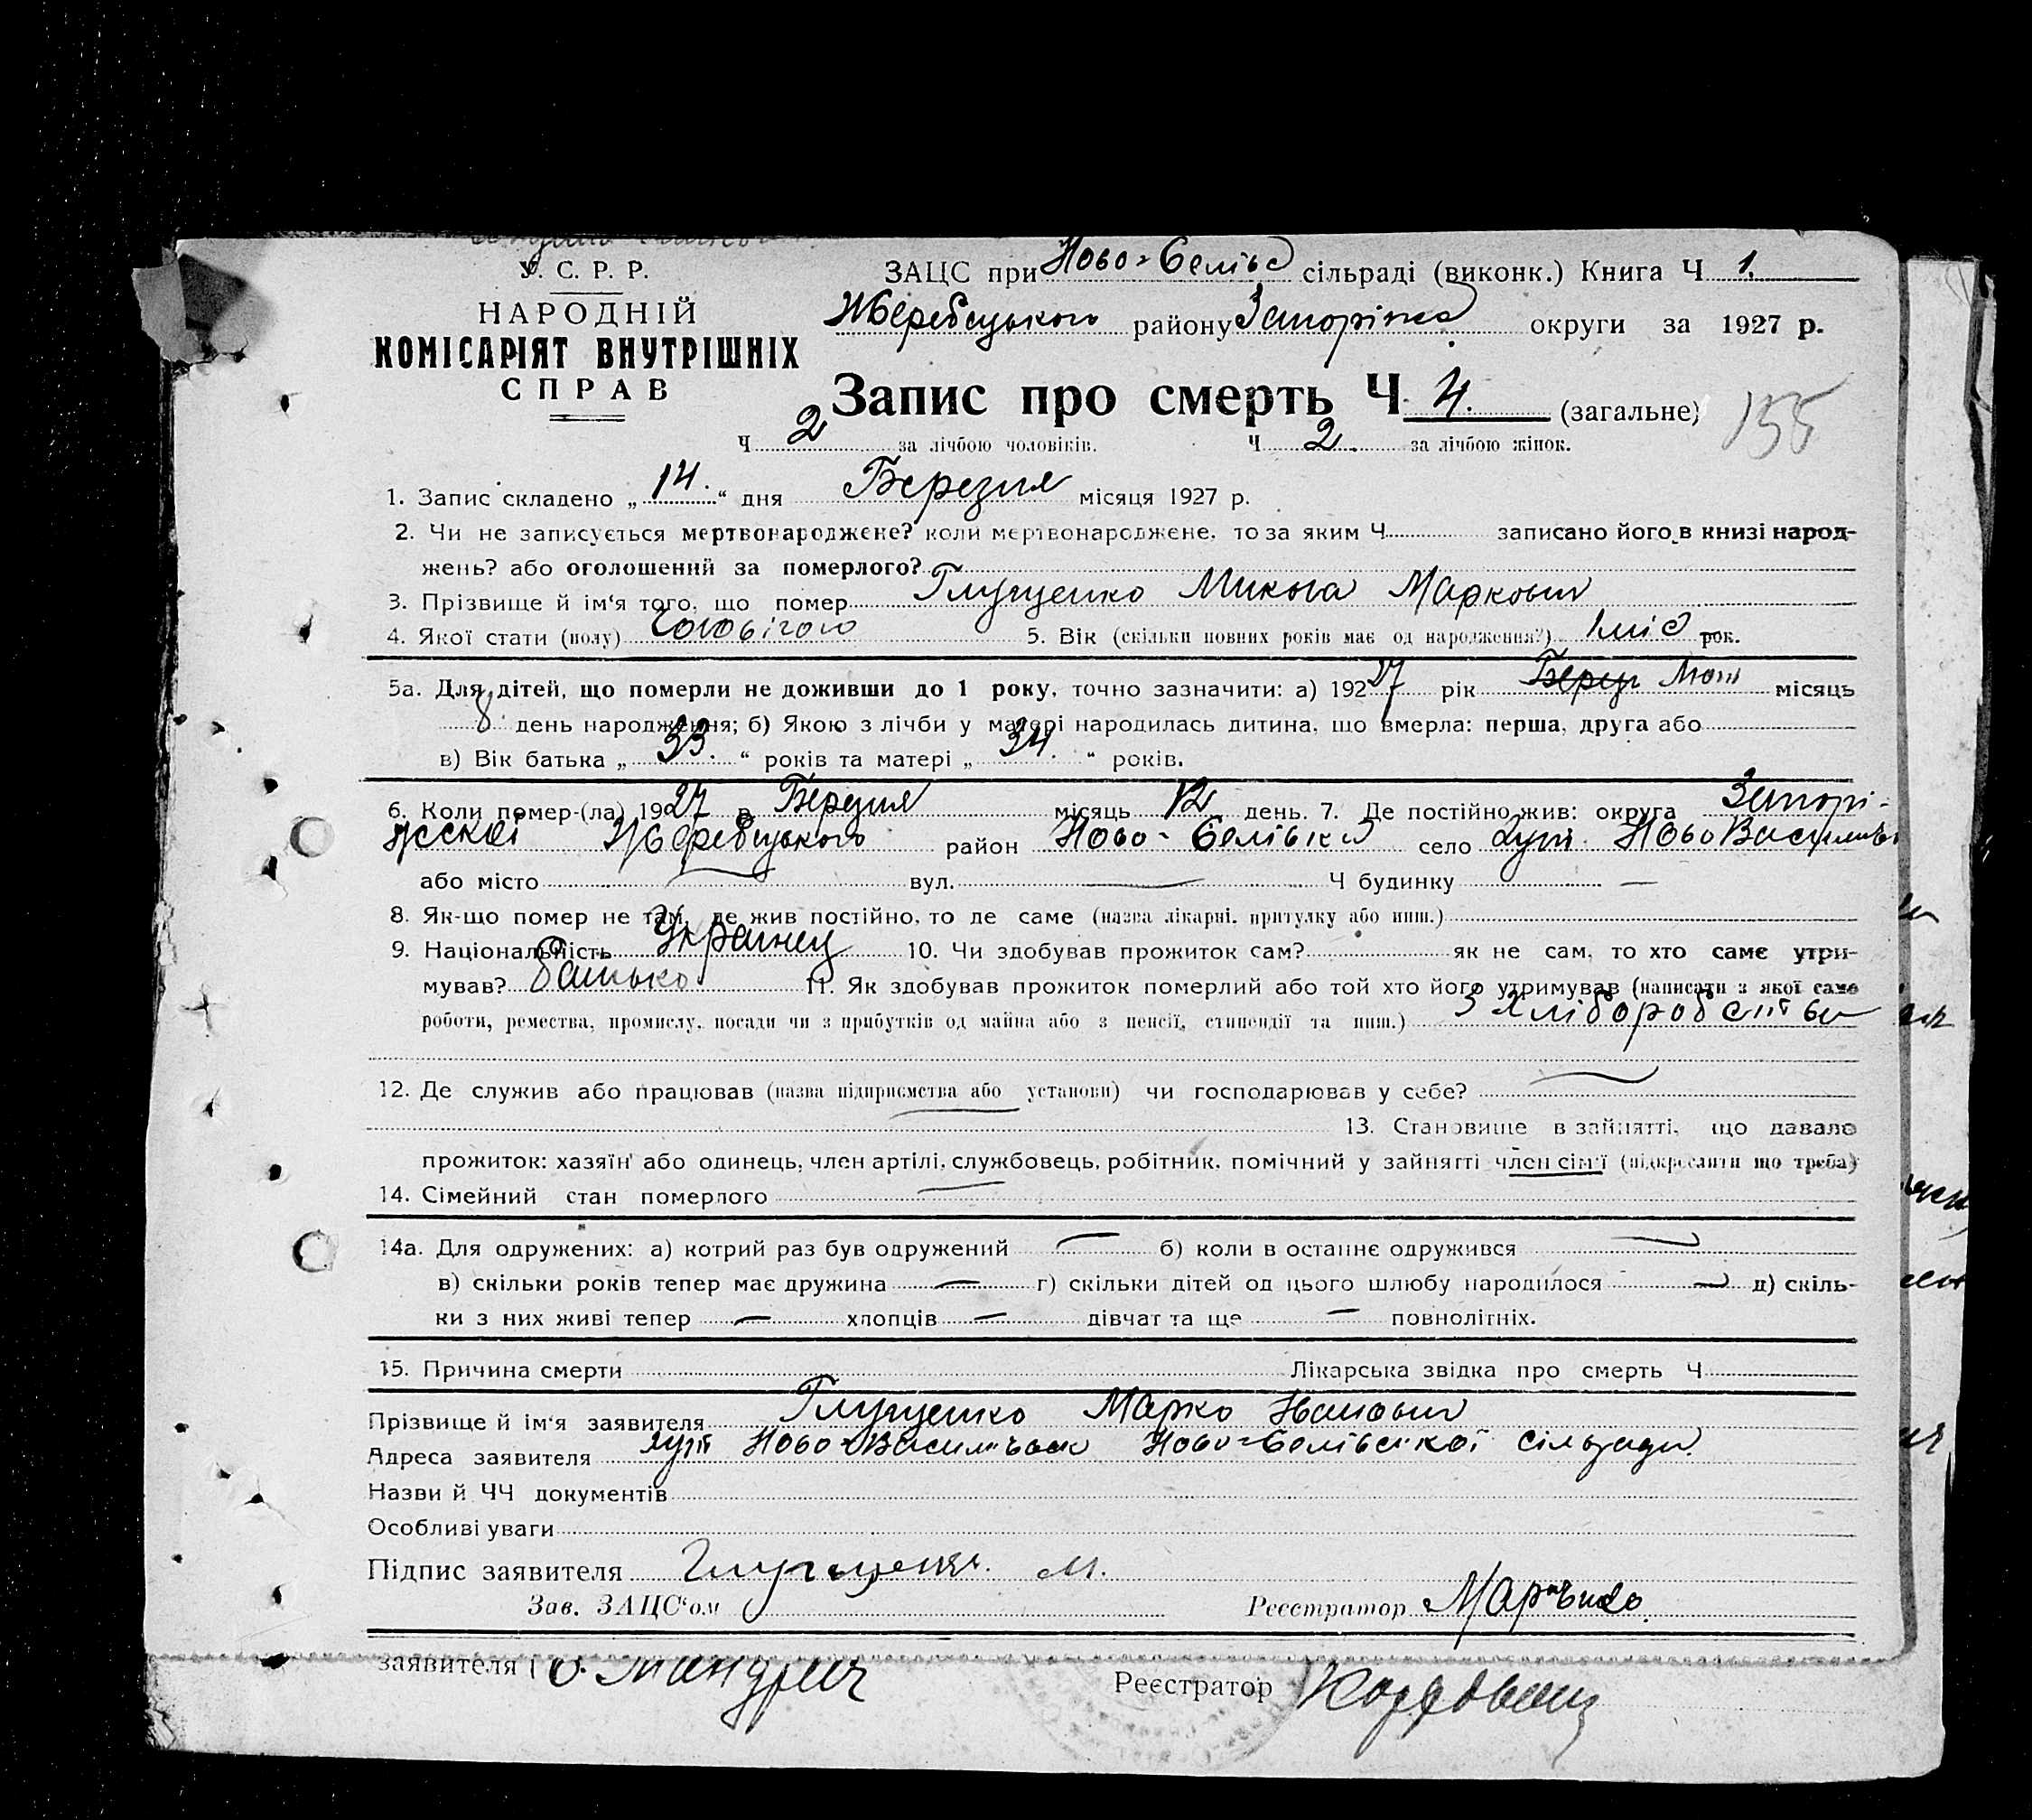 У. С. Р. Р.
НАРОДНІЙ
КОМІСАРІЯТ ВНУТРІШНІХ
СПРАВ
ЗАЦС при Ново-Селівс сільраді (виконк.) Книга Ч 1.
Жеребецького району Запоріжс округи за 1927 р.
Запис про смерть Ч. 4. (загальне)
155
Ч 2 за лічбою чоловіків. Ч 2. за лічбою жінок.
1. Запис складено „ 14. “ дня Березня місяця 1927 р.
2. Чи не записується мертвонароджене? коли мертвонароджене, то за яким Ч записано його в книзі народ-
жень? або оголошений за померлого?
3. Прізвище й ім‘я того, що помер Глущенко Микола Маркович
4. Якої стати (полу) Чоловічого 5. Вік (скільки повних років має од народження?) 1 міс рок.
5а. Для дітей, що померли не доживши до 1 року, точно зазначити: а) 1927 рік Берез Лют місяць
8 день народження; б) Якою з лічби у матері народилась дитина, що вмерла: перша, друга або
в) Вік батька „ 33. “ років та матері „ 34. “ років.
6. Коли помер-(ла) 1927 р. Березня місяць 12 день. 7. Де постійно жив: округа Запорі-
жської Жеребецького район Ново-Селівка село хут. Ново Васильк
або місто — вул. — Ч будинку —
8. Як-що помер не там, де жив постійно, то де саме (назва лікарні, притулку або инш.)
9. Національність Українец 10. Чи здобував прожиток сам? як не сам, то хто саме утри-
мував? батько 11. Як здобував прожиток померлий або той хто його утримував (написати з якої саме
роботи, ремества, промислу, посади чи з прибутків од майна або з пенсії, стипендії та инш.) З хліборобства
12. Де служив або працював (назва підприємства або установи) чи господарював у себе? —
— 13. Становище в зайнятті, що давало
прожиток: хазяїн або одинець, член артілі, службовець, робітник, помічний у зайнятті член сім‘ї (підкреслити що треба)
14. Сімейний стан померлого —
14а. Для одружених: а) котрий раз був одружений — б) коли в останнє одружився —
в) скільки років тепер має дружина — г) скільки дітей од цього шлюбу народилося — д) скіль-
ки з них живі тепер — хлопців — дівчат та ще — повнолітніх.
15. Причина смерти Лікарська звідка про смерть Ч
Прізвище й ім‘я заявителя Глущенко Марко Іванович
Адреса заявителя хут Ново-Васильвськ Ново-Селівської сільради.
Назви й ЧЧ документів
Особливі уваги
Підпис заявителя Глущенко М.
Зав. ЗАЦС‘ом Реєстратор
заявителя Реєстратор